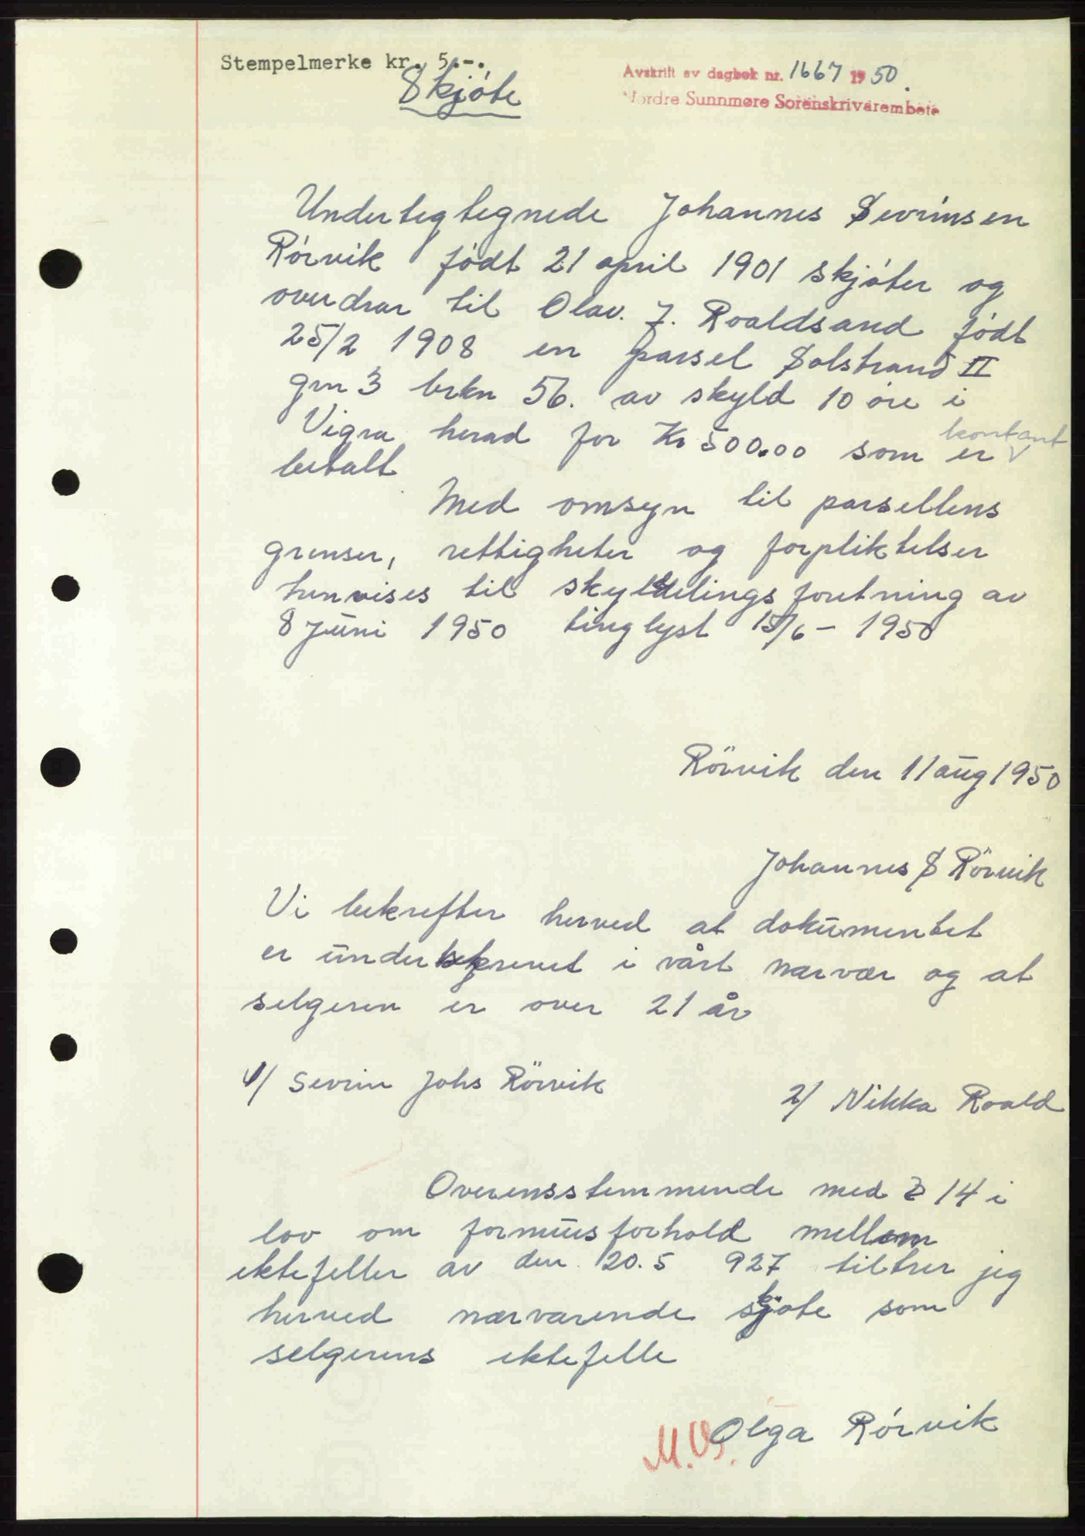 Stempelmerke kr. 5.-.
Skjøte
Avskrift av dagbok nr. 1667 1950.
Nordre Sunnmøre Sorenskriverembete
Undertegtegnede Johannes Sevrinsen
Rørvik født 21 april 1901 skjøter og
overdrar til Olav. J. Roaldsand født
25/2 1908 en parsel Solstrand II
grn 3 brkn 56. av skyld 10 øre i
Vigra herad for Kr 500.00 som er kontant
betalt
Med omsyn til parsellens
grenser, rettigheter og forpliktelser
henvises til skylddelingsforetning av
8 juni 1950 tinglyst 15/6 - 1950
Rörvik den 11 aug 1950
Johannes S Rörvik
Vi bekrefter herved at dokumentet
er underskrevet i vårt nærvær og at
selgeren er over 21 år
1/ Sevrin Johs Rörvik
2/ Nikka Roald
Overensstemmende med § 14 i
lov om formuesforhold mellem
ektefeller av den 20.5 927 tiltrer jeg
herved nærværende skjøte som
selgerens ektefelle
Olga Rørvik